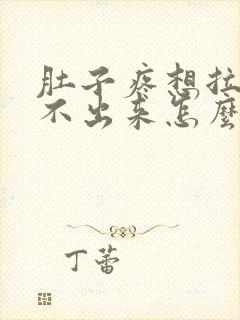 肚子疼想拉
不出来怎麼
丁蕾